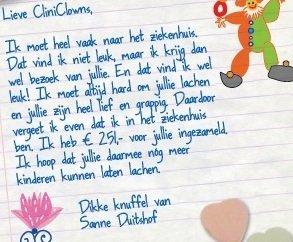 Lieve CliniClowns,
Ik moet heel vaak naar het ziekenhuis.
Dat vind ik niet leuk, maar ik krijg dan
wel bezoek van jullie. En dat vind ik wel
leuk! Ik moet altijd hard om jullie lachen
en jullie zijn heel lief en grappig. Daardoor
vergeet ik even dat ik in het ziekenhuis
ben. Ik heb € 251,- voor jullie ingezameld.
Ik hoop dat jullie daarmee nóg meer
kinderen kunnen laten lachen.
Dikke knuffel van
Sanne Duitshof